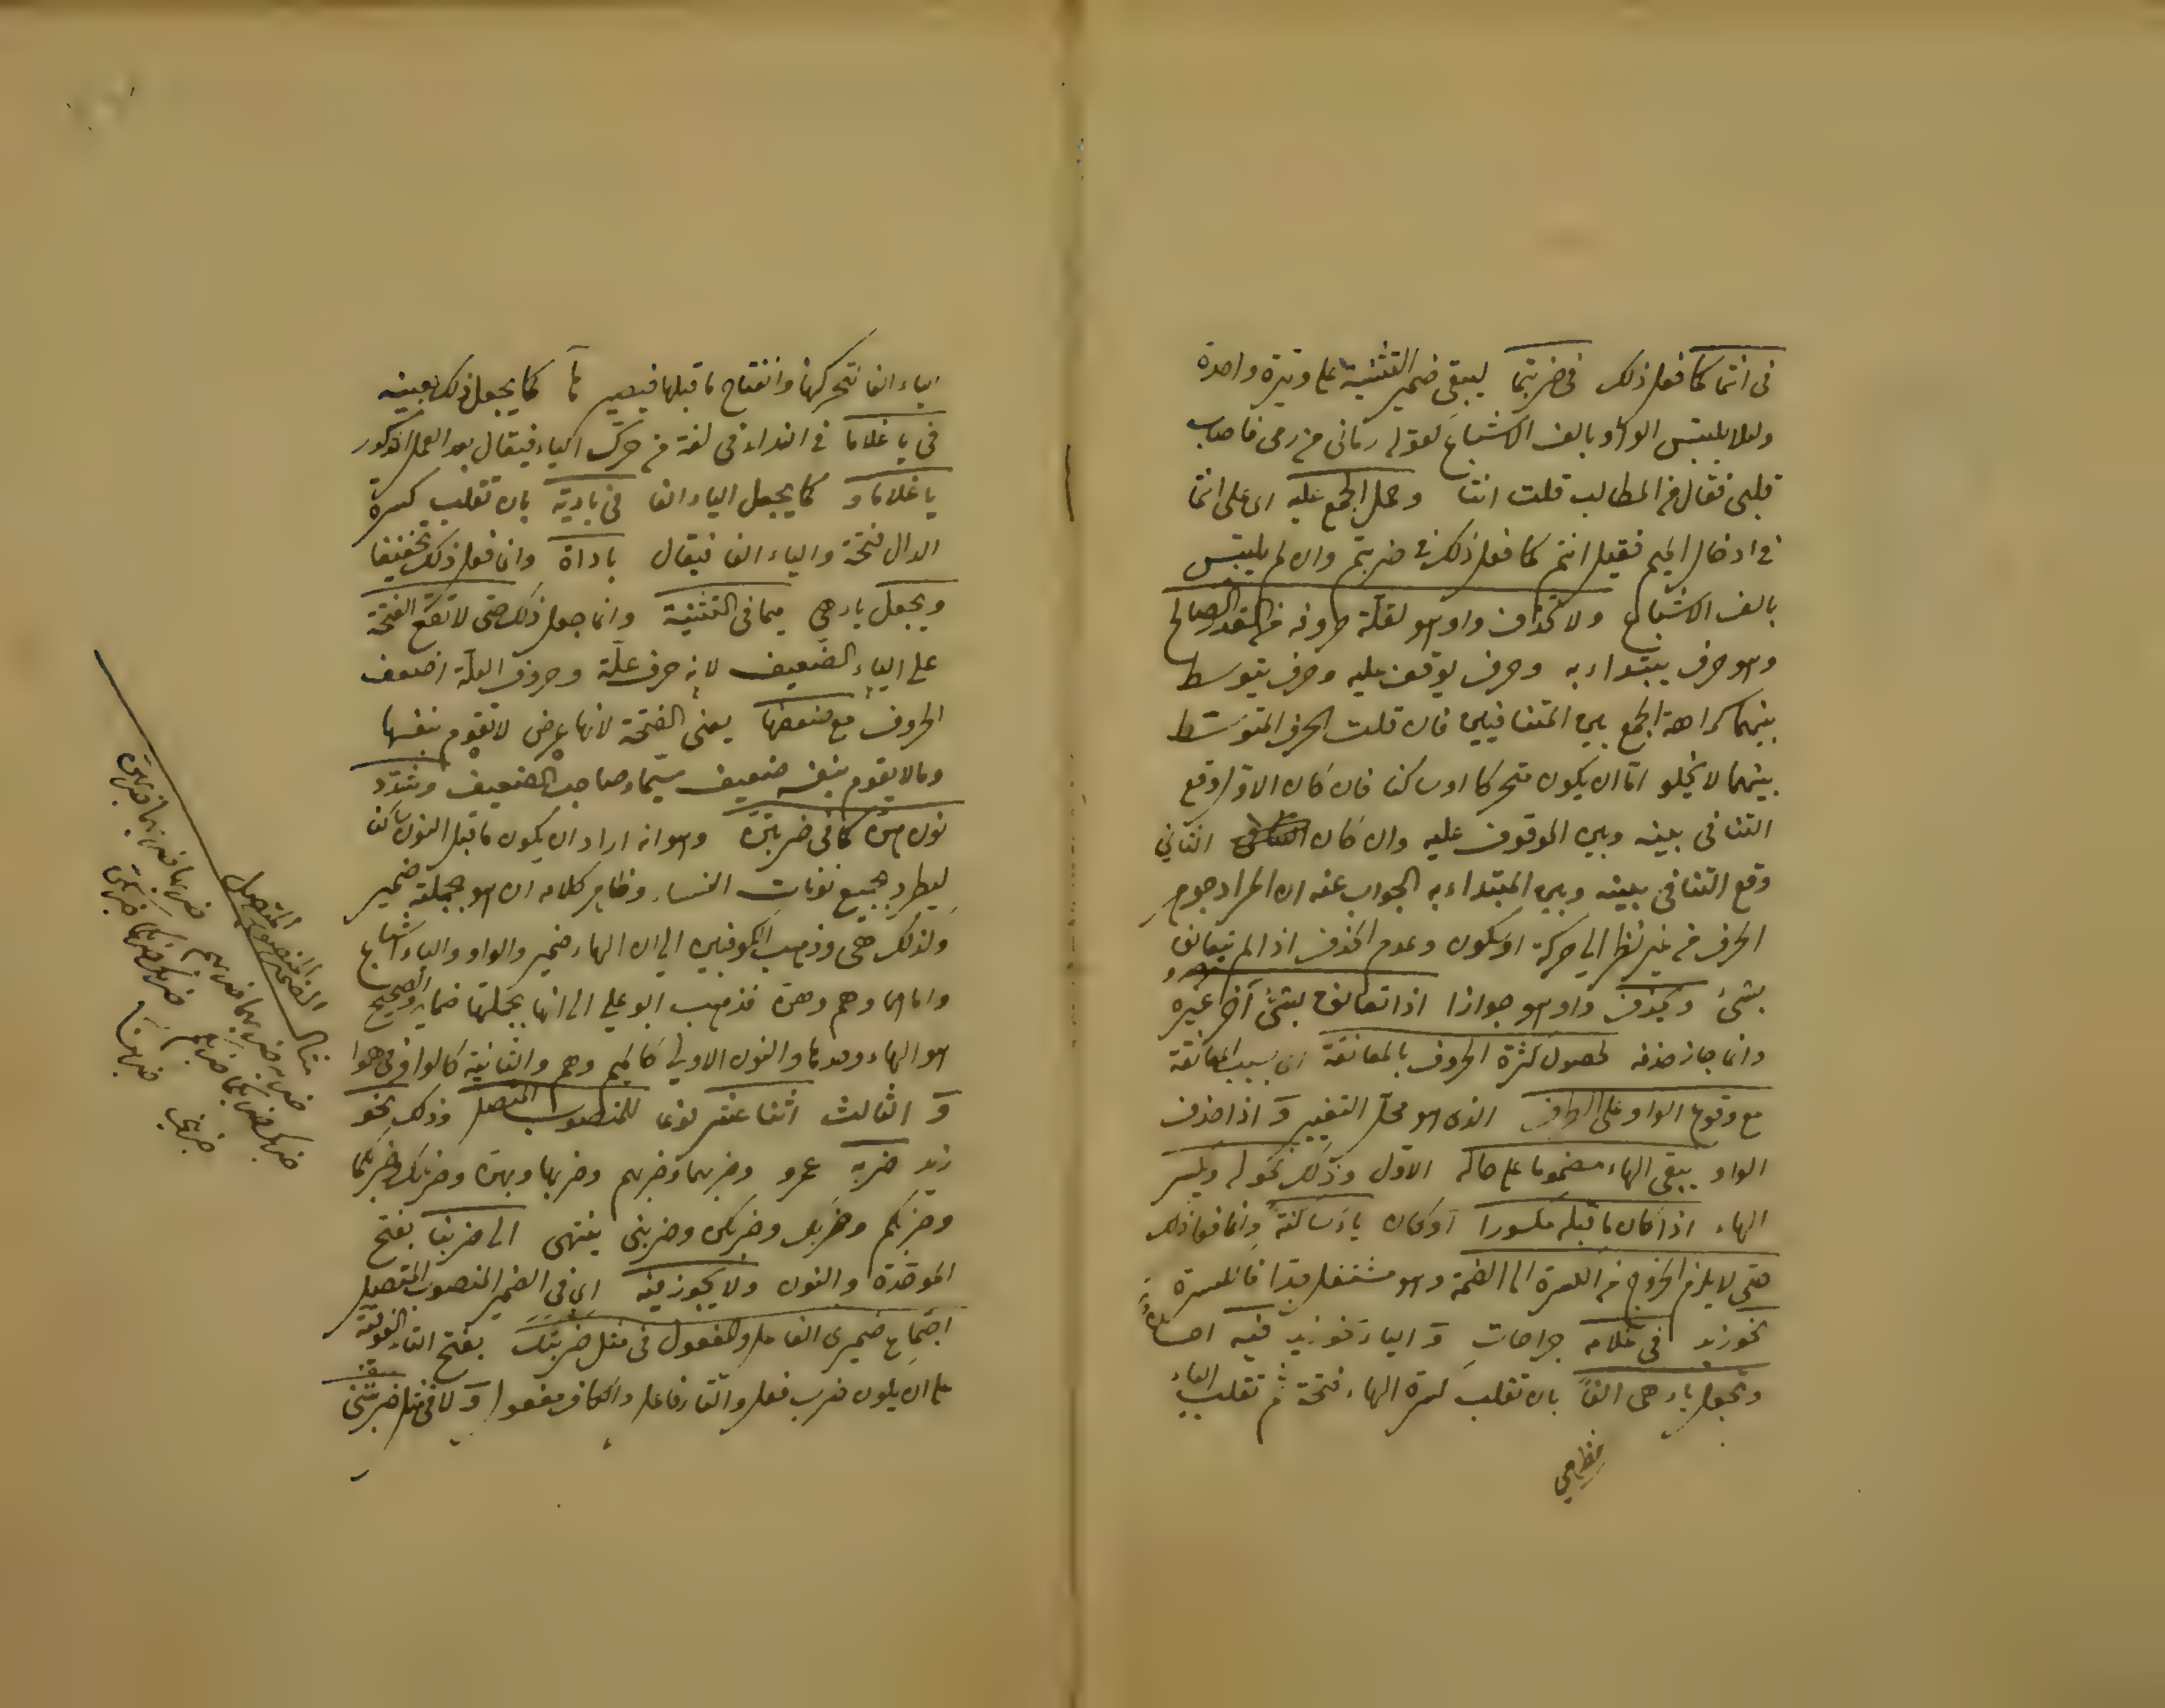 فى انتما كما فعل ذلك فى ضربتما ليبقى ضمير التثنية على وتيرة واحدة
ولئلا يلتبس الواو بالف الاشباع لقوله رمانى من رمى فاصاب
قلبى فقال من المطالب قلت انتا وحمل الجمع عليه اى على انتما
فى ادخال الميم فقيل انتم كما فعل ذلك فى ضربتم وان لم يلتبس
بالف الاشباع ولا تحذف واو هو لقلة حروفه من القدر الصالح
وهو حرف يبتداء به وحرف يوقف عليه وحرف يتوسط
بينهما كراهة الجمع بين المتنافيين فان قلت الحرف المتوسط
بينهما لا يخلو اما ان يكون متحركا او ساكنا فان كان الاول وقع
التنافى بينه وبين الموقوف عليه وان كان الثانى
وقع التنافى بينه وبين المبتداء به الجواب عنه ان المراد جوهر
الحرف من غير نظر الى حركة او سكون وعدم الحذف اذا لم يتعانق
بشئ ويحذف واو هو جوازا اذا تعانق بشئ آخر غيره
وانما جاز حذفه لحصول كثرة الحروف بالمعانقة اى بسبب المعانقة
مع وقوع الواو على الطرف الذى هو محل التغيير و اذا حذف
الواو يبقى الهاء مضموما على حاله الاول وذلك نحو له ويكسر
الهاء اذا كان ما قبله مكسورا او كان ياء ساكنة وانما فعل ذلك
حتى لا يلزم الخروج من الكسرة الى الضمة وهو مستثقل جدا فالكسرة
نحو زيد فى غلامه جراحات و الياء نحو زيد فيه
وتجعل ياء هى الفا بان تقلب كسرة الهاء فتحة ثم تقلب الياء
الياء الفا لتحركها وانفتاح ما قبلها فيصير ها كما يجعل ذلك بعينه
فى يا غلاما فى النداء فى لغة من حرك الياء فيقال بعد العمل المذكور
يا غلاما و كما يجعل الياء الفا فى بادية بان تقلب كسرة
الدال فتحة والياء الفا فيقال باداة وانما فعل ذلك تخفيفا
ويجعل ياء هى ميما فى التثنية وانما جعل ذلك حتى لا تقع الفتحة
على الياء الضعيف لانه حرف علة وحروف العلة اضعف
الحروف مع ضعفها يعنى الفتحة لانها عرض لا تقوم بنفسها
وما لا يقوم بنفسه ضعيف سيما وصاحب الضعيف وشدد
نون هن كما فى ضربتن وهو انه اراد ان يكون ما قبل النون ساكنا
ليطرد بجميع نونات النساء وظاهر كلامه ان هو بجملته ضمير
وكذلك هى وذهب الكوفيين الى ان الهاء ضمير والواو والياء اشباع
واما هما وهم وهن فذهب ابو على الى انها بجملتها ضمائر والصحيح
هو الهاء وحدها والنون الاولى كالميم وهم والثانية كالواو فى هموا
و الثالث اثنا عشر نوعا للمنصوب المتصل وذلك نحو
زيد ضربه عمرو وضربهما وضربهم وضربها وبهن وضربك وضربكما
وضربكم وضربك وضربكن وضربنى ينتهى الى ضربنا بفتح
الموحدة والنون ولا يجوز فيه اى فى الضمير المنصوب المتصل
اجتماع ضميرى الفاعل والمفعول فى مثل ضربتك بفتح التاء الفوقية
على ان يكون ضرب فعل والتاء فاعل والكاف مفعول و لا فى مثل ضربتنى
مثال الضمير المنصوب المتصل
ضربه ضربهما ضربهم ضربها ضربهما ضربهن
ضربك ضربكما ضربكم ضربك ضربكما ضربكن
ضربنى ضربنا